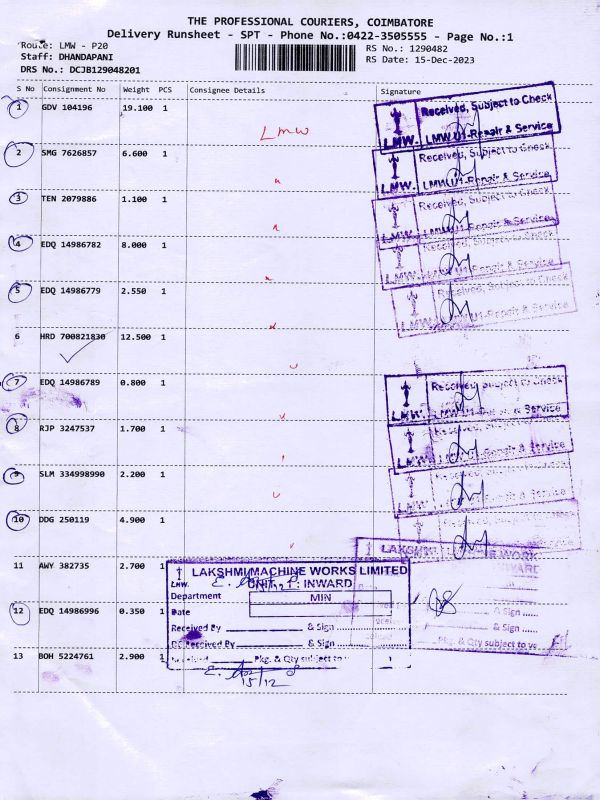 THE PROFESSIONAL COURIERS, COIMBATORE
Delivery Runsheet - SPT - Phone No.:0422-3505555 - Page No.:1
Route: LMW - P20
RS No.: 1290482
Staff: DHANDAPANI
RS Date: 15-Dec-2023
DRS No.: DCJB129048201
S No Consignment No Weight PCS Consignee Details Signature
1 GDV 104196 19.100 1
LMW
Received, Subject to Check
LMW. LMW.U1-Repair & Service
2 SMG 7626857 6.600 1
Received, Subject to Check
LMW. LMW.U1-Repair & Service
3 TEN 2079886 1.100 1
Received, Subject to Check
LMW. U1-Repair & Service
4 EDQ 14986782 8.000 1
Received, Subject to Check
LMW. U1-Repair & Service
5 EDQ 14986779 2.550 1
Received, Subject to Check
LMW. U1-Repair & Service
6 HRD 700821830 12.500 1
7 EDQ 14986789 0.800 1
Received, Subject to Check
LMW. & Service
8 RJP 3247537 1.700 1
Received, Subject to Check
LMW. U1-Repair & Service
9 SLM 334998990 2.200 1
LMW. & Service
10 DDG 250119 4.900 1
11 AWY 382735 2.700 1
LAKSHMI WORK
INWARD
LAKSHMI MACHINE WORKS LIMITED
LMW. UNIT - I: INWARD
Department MIN
12 EDQ 14986996 0.350 1
Date
Received By & Sign
& Sign
DC Received By & Sign
& Sign
13 BOH 5224761 2.900 1
Received Pkg. & Qty subject to
Pkg. & Qty subject to
15/12